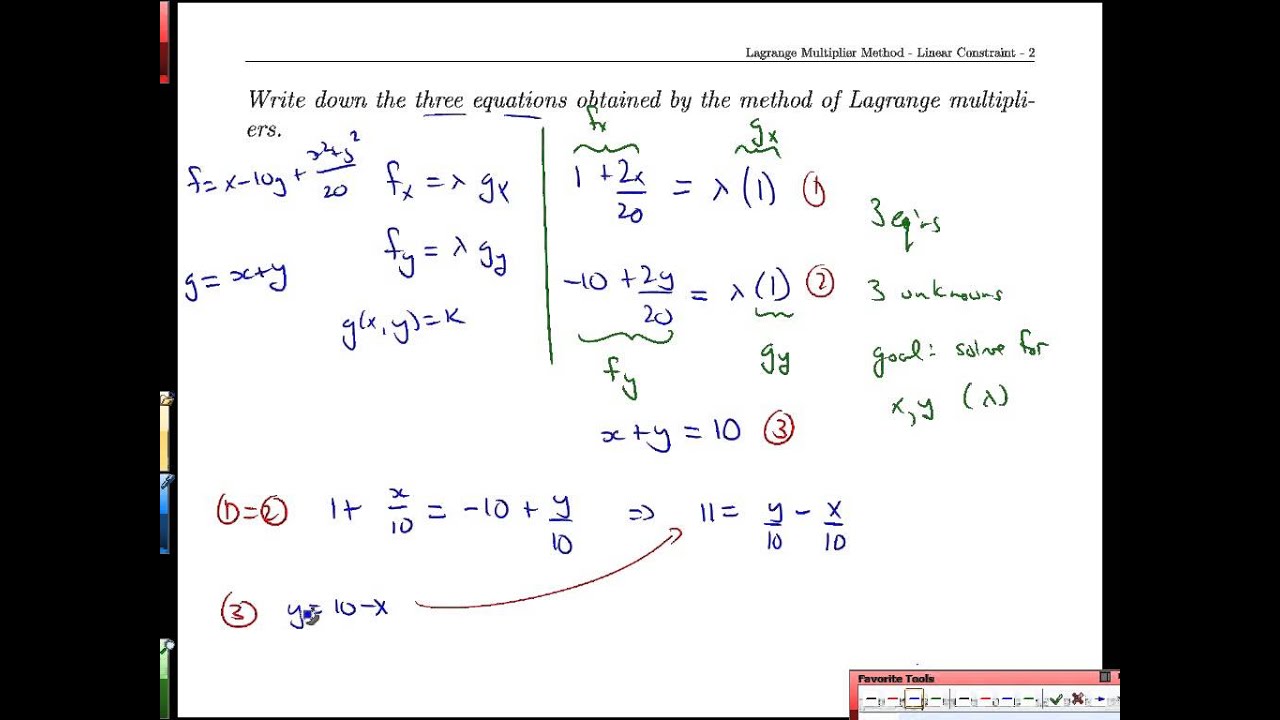 Lagrange Multiplier Method - Linear Constraint - 2
Write down the three equations obtained by the method of Lagrange multipli-
ers.
f = x - 10y + (x² + y²)/20
g = x + y
f_x = λ g_x
f_y = λ g_y
g(x, y) = k
f_x
g_x
1 + 2x/20 = λ (1) ①
-10 + 2y/20 = λ (1) ②
f_y
g_y
x + y = 10 ③
3 eq'ns
3 unknowns
goal: solve for
x, y (λ)
① = ② 1 + x/10 = -10 + y/10 ⇒ 11 = y/10 - x/10
③ y = 10 - x
Favorite Tools